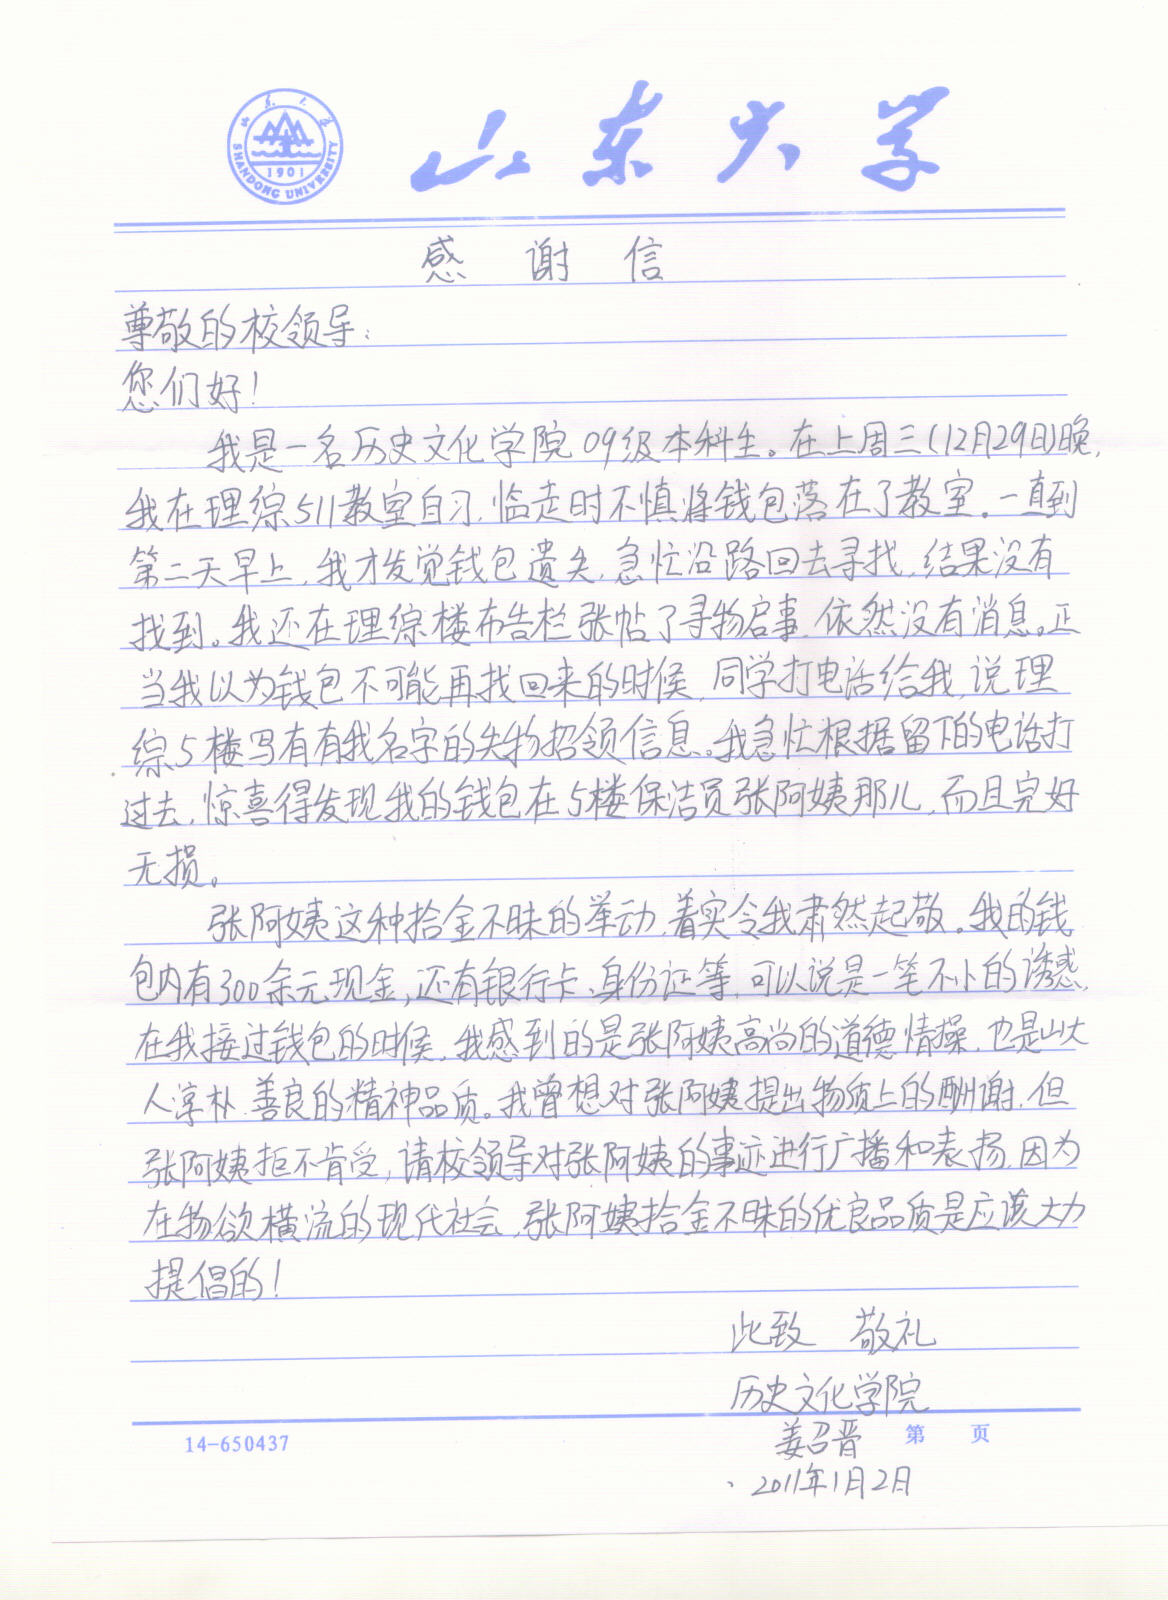 山东大学
SHANDONG UNIVERSITY
1901
山东大学
感谢信
尊敬的校领导:
您们好!
我是一名历史文化学院09级本科生。在上周三(12月29日)晚,
我在理综511教室自习,临走时不慎将钱包落在了教室。一直到
第二天早上,我才发觉钱包遗失,急忙沿路回去寻找,结果没有
找到。我还在理综楼布告栏张帖了寻物启事,依然没有消息。正
当我以为钱包不可能再找回来的时候,同学打电话给我,说理
综5楼写有有我名字的失物招领信息。我急忙根据留下的电话打
过去,惊喜得发现我的钱包在5楼保洁员张阿姨那儿,而且完好
无损。
张阿姨这种拾金不昧的举动,着实令我肃然起敬。我的钱
包内有300余元现金,还有银行卡、身份证等,可以说是一笔不小的诱惑,
在我接过钱包的时候,我感到的是张阿姨高尚的道德情操,也是山大
人淳朴、善良的精神品质。我曾想对张阿姨提出物质上的酬谢,但
张阿姨拒不肯受,请校领导对张阿姨的事迹进行广播和表扬,因为
在物欲横流的现代社会,张阿姨拾金不昧的优良品质是应该大力
提倡的!
此致 敬礼
历史文化学院
14-650437 姜召晋 第 页
2011年1月2日